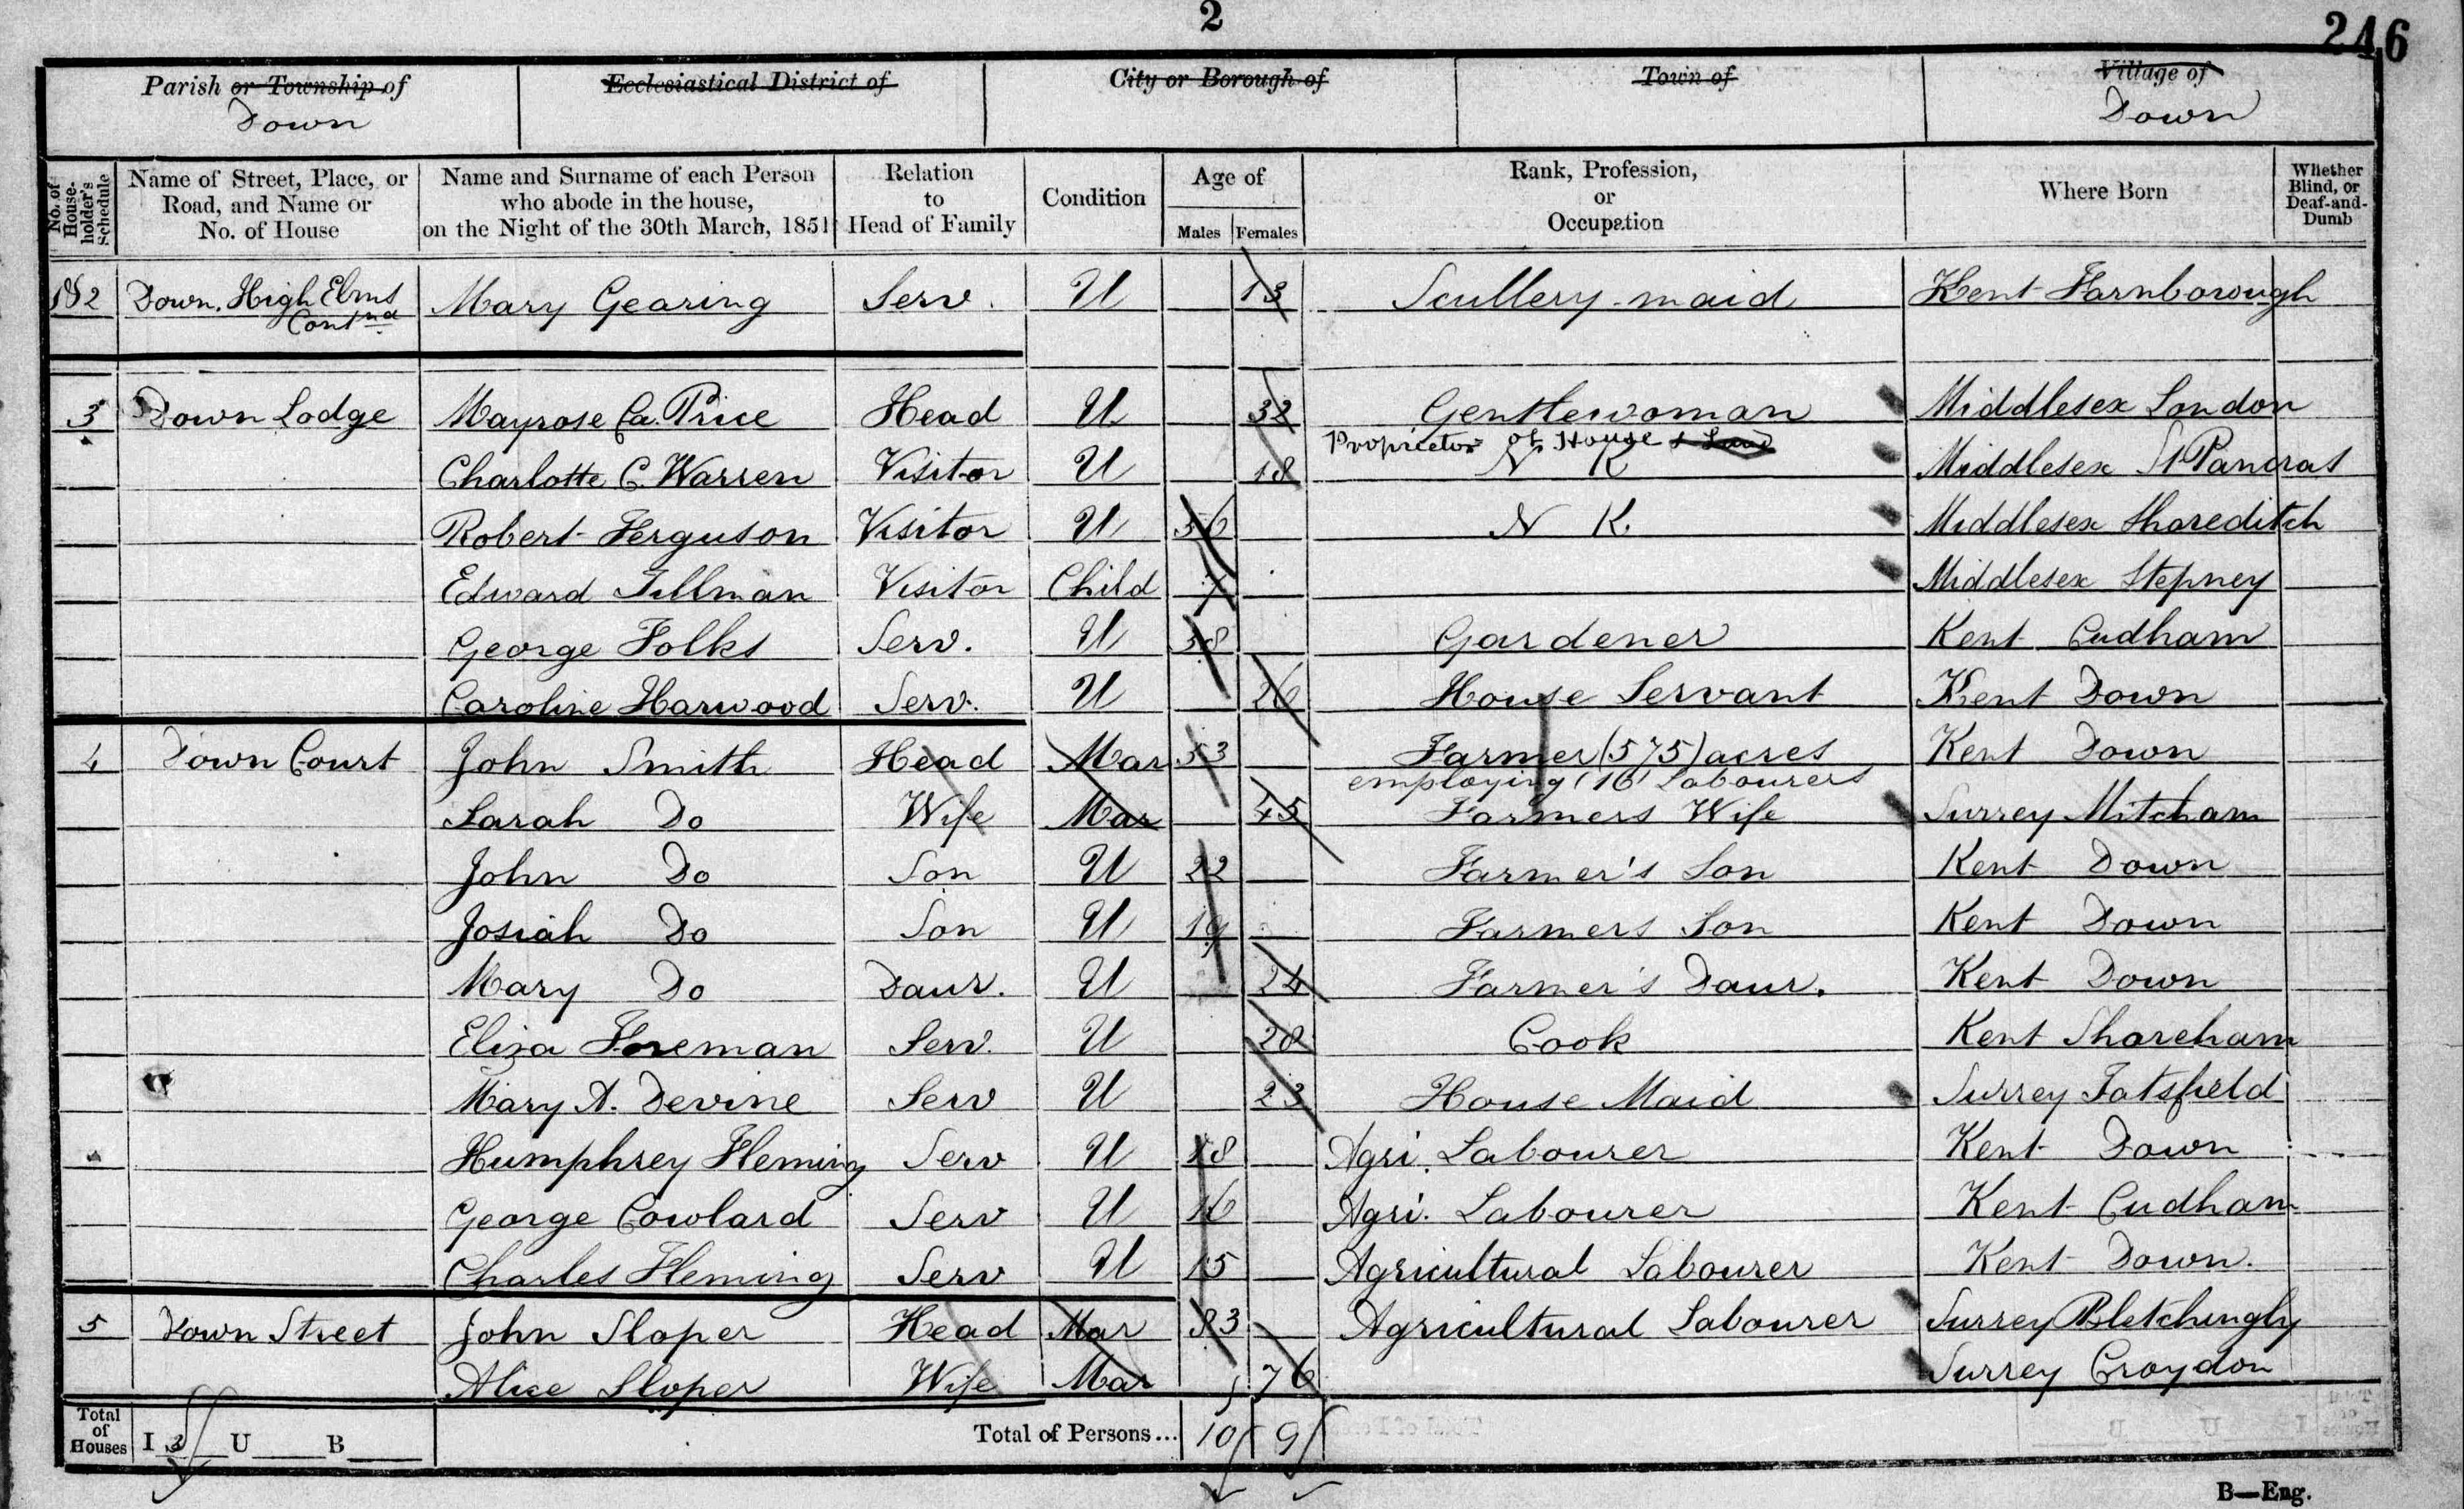 2
246
Parish or Township of Ecclesiastical District of City or Borough of Town of Village of
Down Down
No. of House-holder's Schedule Name of Street, Place, or Road, and Name or No. of House Name and Surname of each Person who abode in the house, on the Night of the 30th March, 1851 Relation to Head of Family Condition Age of Males Females Rank, Profession, or Occupation Where Born Whether Blind, or Deaf-and-Dumb
1&2 Down. High Elms Mary Gearing Serv. U 13 Scullery-maid Kent Farnborough
Contnd
3 Down Lodge Mayrose Ca. Price Head U 32 Gentlewoman Middlesex London
Proprietor of House & Land
Charlotte C. Warren Visitor U 18 N K Middlesex St Pancras
Robert Ferguson Visitor U 36 N K. Middlesex Shoreditch
Edward Tillman Visitor Child 7 Middlesex Stepney
George Folks Serv. U 38 Gardener Kent Cudham
Caroline Harwood Serv. U 26 House Servant Kent Down
4 Down Court John Smith Head Mar 53 Farmer (575) acres Kent Down
employing (16) Labourers
Sarah Do Wife Mar 45 Farmers Wife Surrey Mitcham
John Do Son U 22 Farmer's Son Kent Down
Josiah Do Son U 19 Farmers Son Kent Down
Mary Do Daur. U 24 Farmer's Daur. Kent Down
Eliza Foreman Serv. U 28 Cook Kent Shoreham
Mary A. Devine Serv U 23 House Maid Surrey Tatsfield
Humphrey Fleming Serv U 18 Agri. Labourer Kent Down
George Cowlard Serv U 16 Agri. Labourer Kent Cudham
Charles Fleming Serv U 15 Agricultural Labourer Kent Down.
5 Down Street John Sloper Head Mar 83 Agricultural Labourer Surrey Bletchingly
Alice Sloper Wife Mar 76 Surrey Croydon
Total of Houses I 3 U B Total of Persons... 10 9
B—Eng.